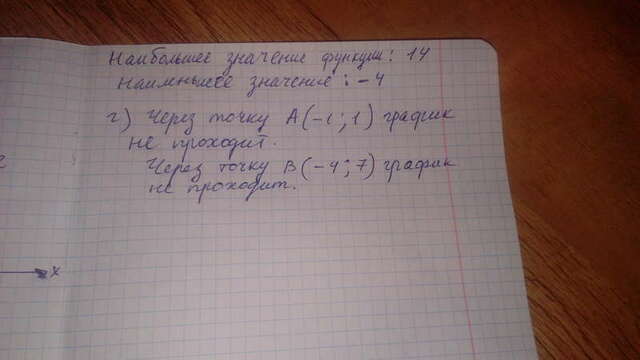 Наибольшее значение функции: 14
Наименьшее значение: -4
г) Через точку A(-1;1) график
не проходит.
Через точку B(-4;7) график
не проходит.
x